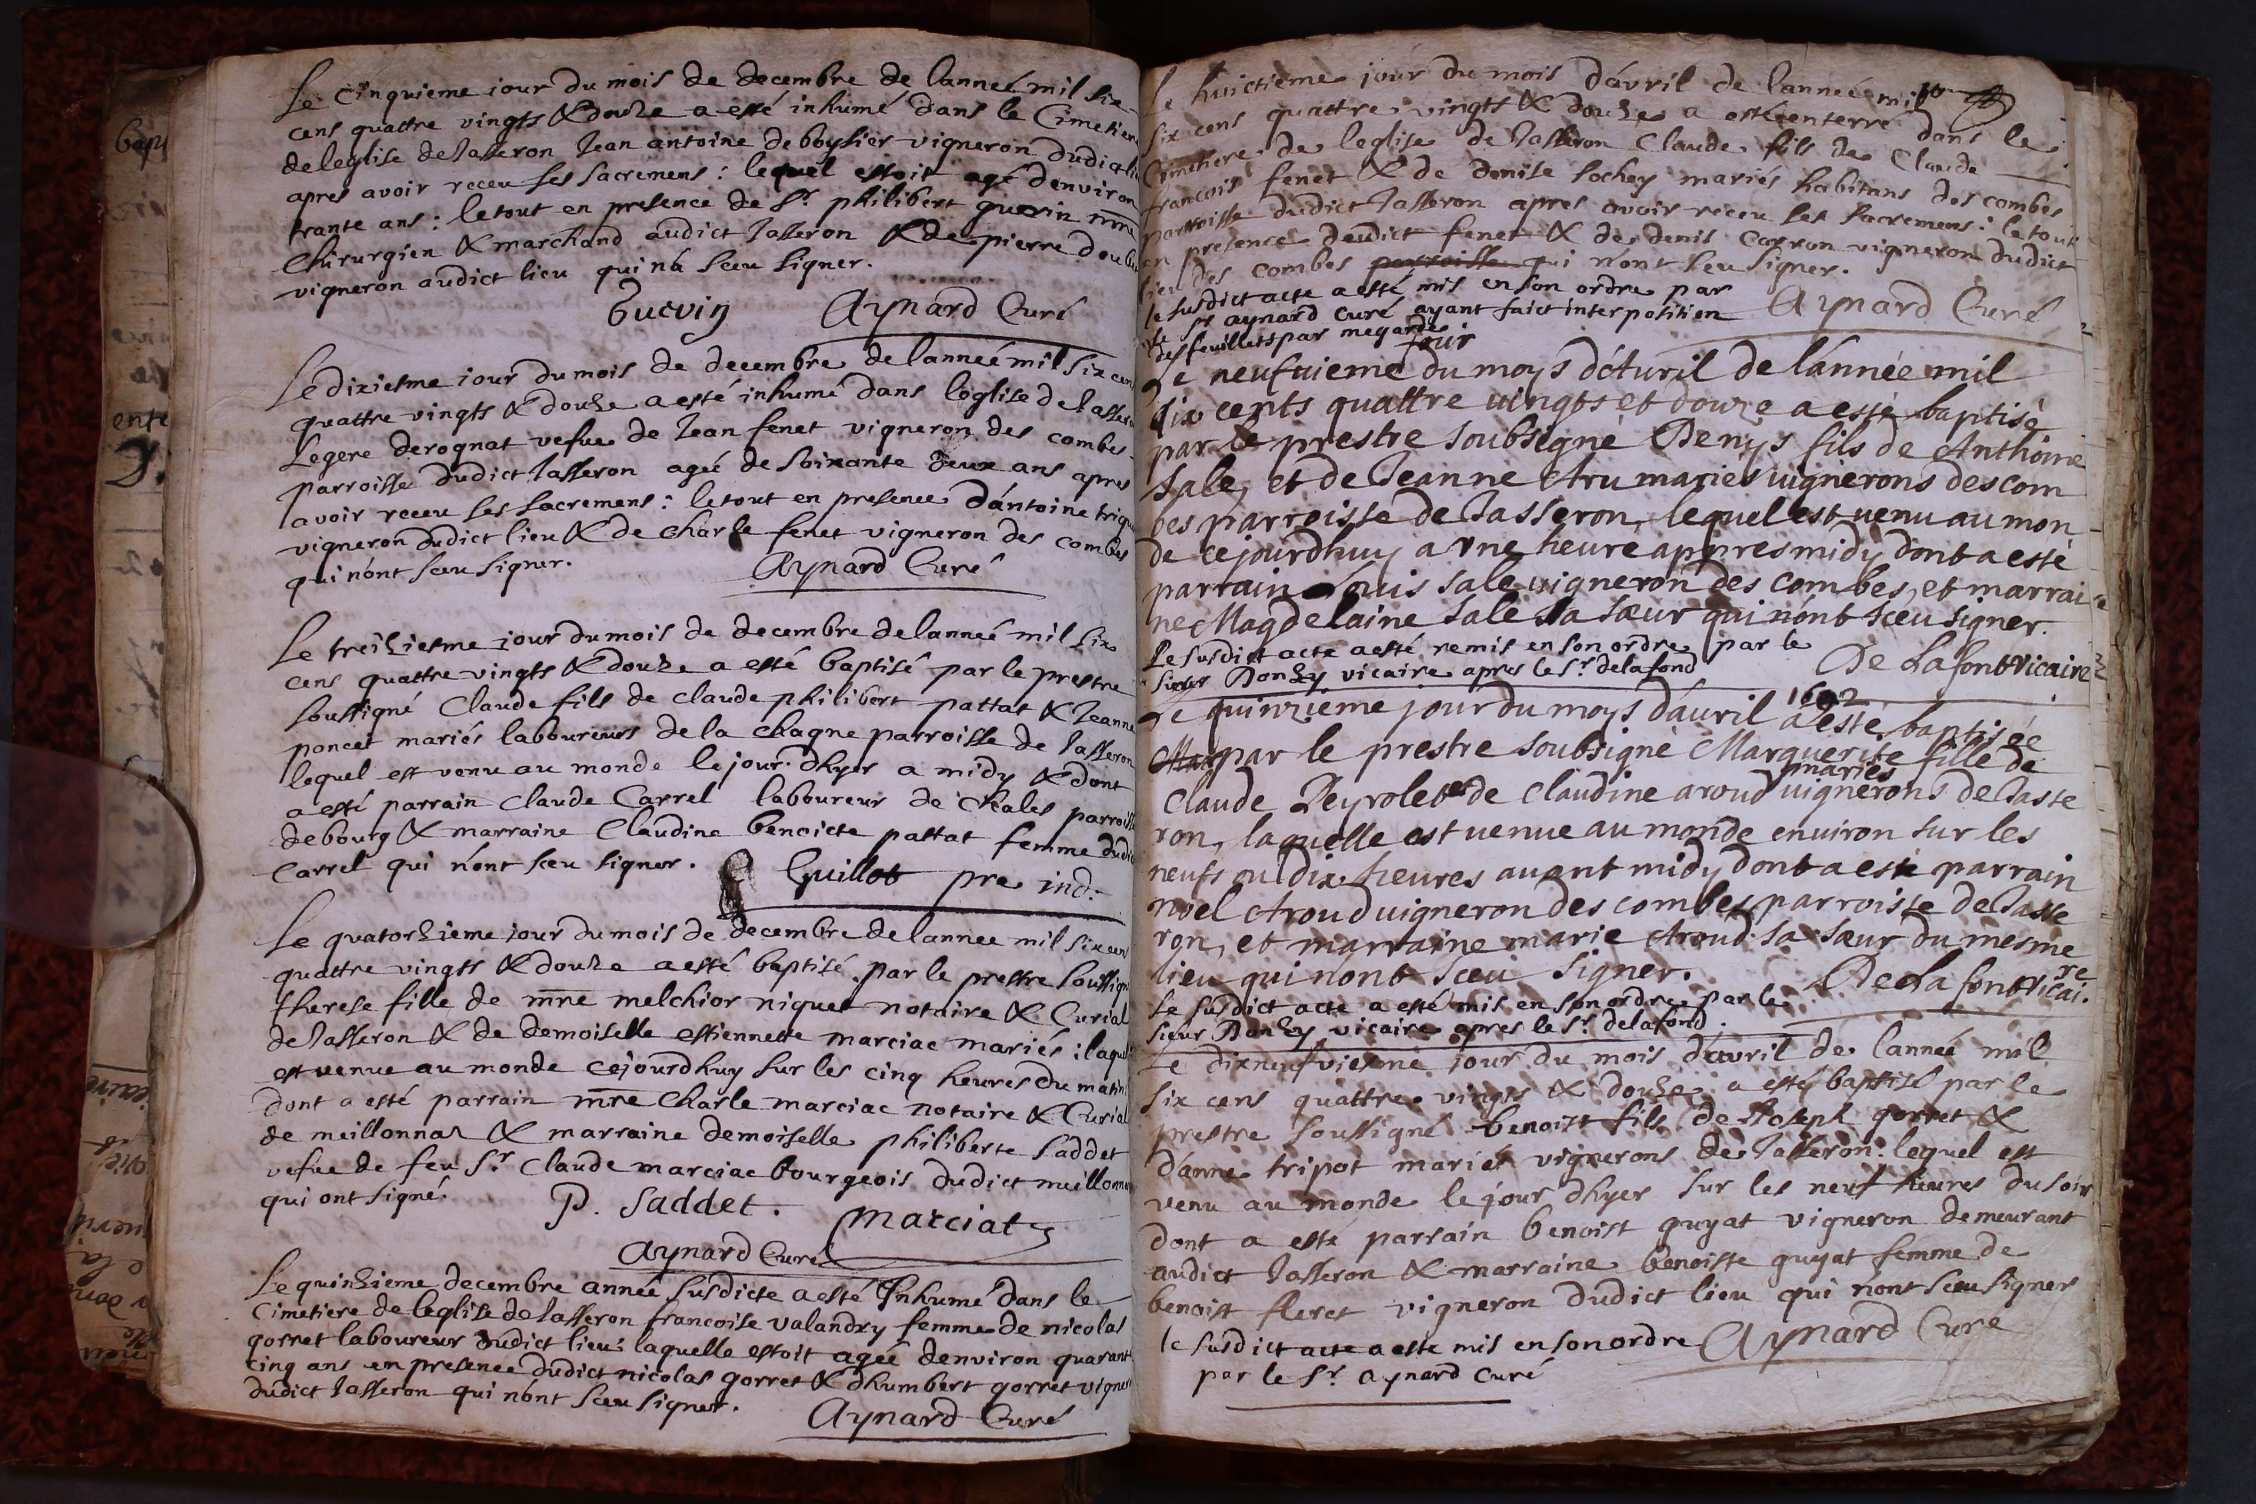 Le cinquieme iour du mois de decembre de lanneé mil six
cens quattre vingts & douze a esté inhumé dans le Cimetiere
de leglise de Jasseron Jean antoine de boysier vigneron dudict lieu
apres avoir receu ses sacremens : lequel estoit agé denviron
trante ans : le tout en presence de Sr. philibert guerin mre
Chirurgien & marchand audict Jasseron & de pierre
vigneron audict lieu qui na sceu signer.
Guerin Aynard Curé
Le dixiesme iour du mois de decembre de lanneé mil six cens
quattre vingts & douze a esté inhumé dans leglise de Jasseron
Legere derognat vefue de Jean fenet vigneron des combes
parroisse dudict Jasseron ageé de soixante deux ans apres
avoir receu ses sacremens : le tout en presence dantoine
vigneron dudict lieu & de charle fenet vigneron des combes
qui nont sceu signer. Aynard Curé
Le treiziesme iour du mois de decembre de lanneé mil six
cens quattre vingts & douze a esté baptisé par le prestre
soussigné Claude fils de claude philibert pattat & Jeanne
poncet mariés laboureurs de la chagne parroisse de Jasseron
lequel est venu au monde le jour dhyer a midy & dont
a esté parrain Claude Carrel laboureur de Chales parroisse
de bourg & marraine Claudine benoicte pattat femme dudict
Carrel qui nont sceu signer. Guillot pre ind.
Le quatorzieme iour du mois de decembre de lannee mil six cens
quattre vingts & douze a esté baptisé par le prestre soussigné
therese fille de mre melchior niquet notaire & Curial
de Jasseron & de demoiselle estiennette marciac mariés : laquelle
est venue au monde cejourdhuy sur les cinq heures du matin
dont a esté parrain mre Charle marciac notaire & Curial
de meillonnaz & marraine demoiselle philiberte saddet
vefue de feu Sr. Claude marciac bourgeois dudict meillonnaz
qui ont signé. P. Saddet. Marciat
Aynard Curé
Le quinzieme decembre année susdicte a esté Inhumé dans le
Cimetiere de leglise de Jasseron francoise valandry femme de nicolas
gorret laboureur dudict lieu : laquelle estoit ageé denviron quarante
cinq ans en presence dudict nicolas gorret & dhumbert gorret vigneron
dudict Jasseron qui nont sceu signer. Aynard Curé
Le huictieme jour du mois davril de lanneé mil
six cens quattre vingts & douze a esté enterré dans le
Cimethere de leglise de Jasseron Claude fils de Claude
francois fenet & de denise sochey mariés habitans des combes
parroisse dudict Jasseron apres avoir receu les sacremens : le tout
en presence deudict fenet & de denis carron vigneron dudict
lieu des combes parroisse qui nont sceu signer.
le susdict acte a esté mis en son ordre par Aynard Curé
le Sr aynard curé ayant faict interposition
des feuillets par megarde
jour
Le neufuieme du moys d'Auril de l'année mil
six cents quattre uingts et douze a esté baptisé
par le prestre soubsigné Denys fils de Anthoine
Sale, et de Jeanne Aru mariés uignerons des com
bes parroisse de Jasseron, lequel est uenu au mon
de cejourdhuy a une heure appres midy dont a esté
parrain Louis sale uigneron des combes, et marrai
ne Magdelaine sale sa sœur qui n'ont sceu signer.
Le susdict acte a esté remis en son ordre par le De Lafont Vicaire
sieur Donzy vicaire apres le Sr. delafond
1692
Le quinzieme jour du moys d'auril a esté baptiseé
Mar par le prestre soubsigné Marguerite fille de
mariés
Claude Peyrolet et de Claudine aroud uignerons de Jasse
ron, laquelle est uenue au monde enuiron sur les
neufs ou dix heures auant midy dont a esté parrain
noel Aroud uigneron des combes parroisse de Jasse
ron, et marraine marie Aroud sa sœur du mesme
lieu qui nont sceu signer. De Lafont Vicaire
Le susdict acte a esté mis en son ordre par le
sieur Donzy vicaire apres le Sr. delafond.
Le dixneufviesme iour du mois davril de lanneé mil
six cens quattre vingts & douze a esté baptisé par le
prestre soussigné benoist fils de Joseph gorret &
danne tripot mariés vignerons de Jasseron : lequel est
venu au monde le jour dhyer sur les neuf heures du soir
dont a esté parrain benoist guyat vigneron demeurant
audict Jasseron & marraine benoiste guyat femme de
benoist fleret vigneron dudict lieu qui nont sceu signer
le susdict acte a esté mis en son ordre Aynard Curé
par le Sr. aynard curé